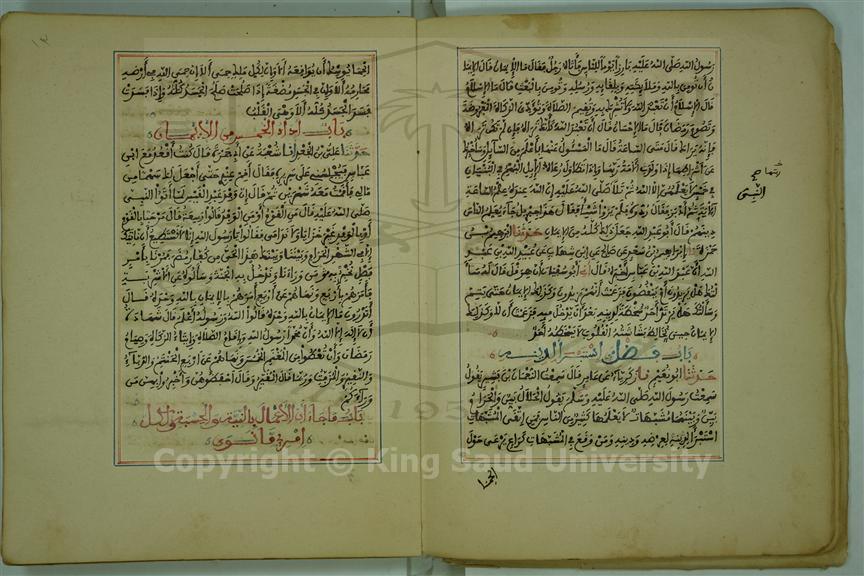 رسول الله صلى الله عليه بارزا يوما للناس فأتاه رجل فقال ما الإيمان قال الإيما
ن أن تومن بالله وملايكته وبلقايه ورسله وتومن بالبعث قال ما الإسلام
قال الإسلام أن تعبد الله ولا تشرك به وتقيم الصلاة وتؤدي الزكاة المفروضة
وتصوم رمضان قال ما الإحسان قال أن تعبد الله كأنك تراه فإن لم تكن تراه
فإنه يراك قال متى الساعة قال ما المسئول عنها بأعلم من السايل وسأخبرك
عن أشراطها إذا ولدت الأمة ربها وإذا تطاول رعاة الإبل البهم في البنيان
في خمس لا يعلمهن إلا الله ثم تلا صلى الله عليه إن الله عنده علم الساعة
الآية ثم أدبر فقال ردوه فلم يروا شيئا فقال هذا جبريل جاء يعلم الناس
دينهم قال أبو عبد الله جعل ذلك كله من الإيمان حدثنا إبراهيم بن
حمزة نا إبراهيم بن سعد عن صالح عن ابن شهاب عن عبيد الله بن عبد
الله أن عبد الله بن عباس أخبره قال أبو سفيان أن هرقل قال له سألتك
هل يزيدون أم ينقصون فزعمت أنهم يزيدون وكذلك الإيمان حتى يتم
وسألتك هل يرتد أحد سخطة لدينه بعد أن يدخل فيه فزعمت أن لا وكذلك
الإيمان حين تخالط بشاشته القلوب لا يسخطه أحد
باب فضل من استبرأ لدينه
حدثنا أبو نعيم نا زكرياء عن عامر قال سمعت النعمان بن بشير يقول
سمعت رسول الله صلى الله عليه وسلم يقول الحلال بين والحرام
بين وبينهما مشبهات لا يعلمها كثير من الناس فمن اتقى المشبهات
استبرأ لدينه وعرضه ومن وقع في الشبهات كراع يرعى حول
الحما
الحما يوشك أن يواقعه ألا وإن لكل ملك حمى ألا إن حمى الله في أرضه
محارمه ألا وإن في الجسد مضغة إذا صلحت صلح الجسد كله وإذا فسدت
فسد الجسد كله ألا وهي القلب
باب أداء الخمس من الإيمان
حدثنا علي بن الجعد أنا شعبة عن أبي جمرة قال كنت أقعد مع ابن
عباس يجلسني على سريره فقال أقم عندي حتى أجعل لك سهما من
مالي فأقمت معه شهرين ثم قال إن وفد عبد القيس لما أتوا النبي
صلى الله عليه قال من القوم أو من الوفد قالوا ربيعة قال مرحبا بالقوم
أو بالوفد غير خزايا ولا ندامى فقالوا يا رسول الله إنا لا نستطيع أن نأتيك
إلا في الشهر الحرام وبيننا وبينك هذا الحي من كفار مضر فمرنا بأمر
فصل نخبر به من وراءنا وندخل به الجنة وسألوه عن الأشربة
فأمرهم بأربع ونهاهم عن أربع أمرهم بالإيمان بالله وحده قال
أتدرون ما الإيمان بالله وحده قالوا الله ورسوله أعلم قال شهادة
أن لا إله إلا الله وأن محمدا رسول الله وإقام الصلاة وإيتاء الزكاة وصيام
رمضان وأن تعطوا من المغنم الخمس ونهاهم عن أربع الحنتم والدباء
والنقير والمزفت وربما قال المقير وقال احفظوهن وأخبروا بهن من
وراءكم
باب ما جاء أن الأعمال بالنية والحسبة ولكل
امرئ ما نوى
Copyright © King Saud University